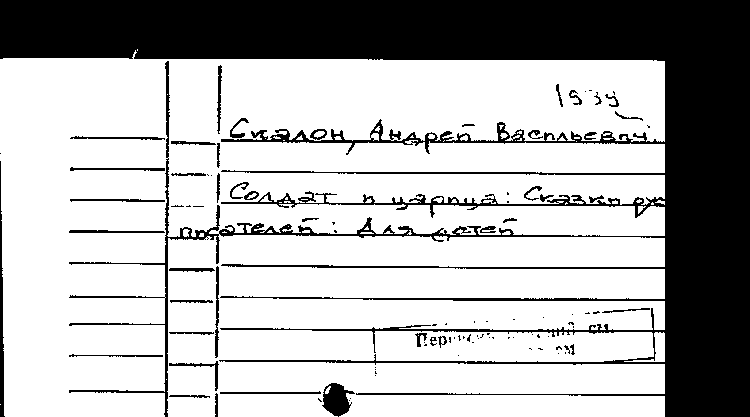 1939
Скалон, Андрей Васильевич.
Солдат и царица: Сказки рус
писателей: Для детей
см.